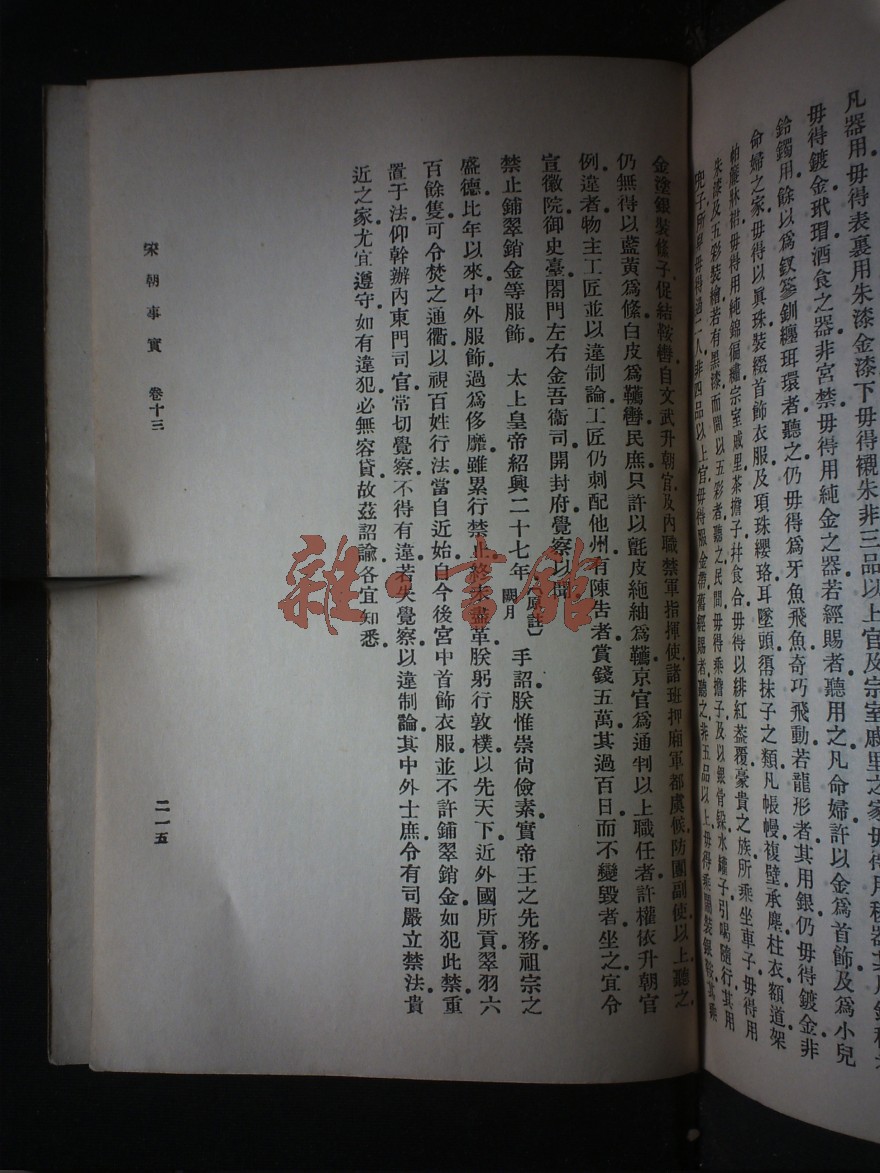 凡器用毋得表裏用朱漆金漆下毋得襯朱非三品以上官及宗室戚里之家毋得用
毋得鍍金玳瑁酒食之器非宮禁毋得用純金之器若經賜者聽用之凡命婦許以金爲首飾及爲小兒
鈴鐲用餘以爲釵篸釧纏珥環者聽之仍毋得爲牙魚飛魚奇巧飛動若龍形者其用銀仍毋得鍍金非
命婦之家毋得以眞珠裝綴首飾衣服及項珠纓珞耳墜頭𢄼抹子之類凡帳幔複壁承塵柱衣額道架
帕毋得用純錦徧繡宗室戚里茶擔子幷食合毋得以緋紅葢覆豪貴之族所乘坐車子毋得用
朱漆及五彩裝繪若有黑漆而間以五彩者聽之民間毋得乘擔子及以銀骨朶水罐子引喝隨行其用
兜子所舁毋得過二人非四品以上官毋得服金帶舊經賜者聽之非五品以上毋得乘鬧裝銀鞍其乘
金塗銀裝絛子促結鞍轡自文武升朝官及內職禁軍指揮使諸班押廂軍都虞候防團副使以上聽之
仍無得以藍黃爲絛白皮爲韉轡民庶只許以氈皮絁紬爲韉京官爲通判以上職任者許權依升朝官
例違者物主工匠並以違制論工匠仍刺配他州有陳告者賞錢五萬其過百日而不變毀者坐之宜令
宣徽院御史臺閤門左右金吾衞司開封府覺察以聞
禁止鋪翠銷金等服飾 太上皇帝紹興二十七年〔原註〕闕月 手詔朕惟崇尙儉素實帝王之先務祖宗之
盛德比年以來中外服飾過爲侈靡雖累行禁止終未盡革朕躬行敦樸以先天下近外國所貢翠羽六
百餘隻可令焚之通衢以視百姓行法當自近始自今後宮中首飾衣服並不許鋪翠銷金如犯此禁重
置于法仰幹辦內東門司官常切覺察不得有違若失覺察以違制論其中外士庶令有司嚴立禁法貴
近之家尤宜遵守如有違犯必無容貸故茲詔諭各宜知悉
宋朝事實 卷十三
二一五
雜·書館